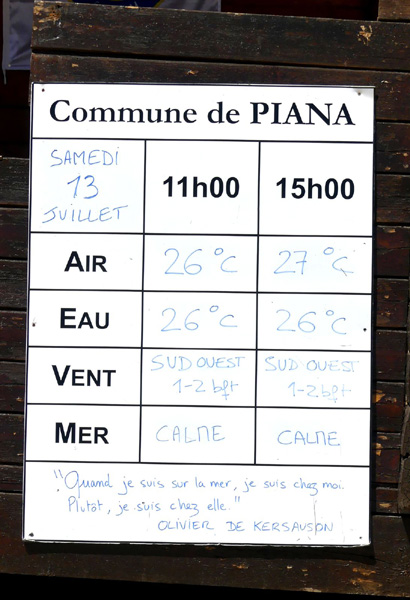 Commune de PIANA
SAMEDI
13
JUILLET
11h00
15h00
AIR
26°C
27°C
EAU
26°C
26°C
VENT
SUD OUEST
1-2 bft
SUD OUEST
1-2 bft
MER
CALME
CALME
"Quand je suis sur la mer, je suis chez moi.
Plutôt, je suis chez elle."
OLIVIER DE KERSAUSON